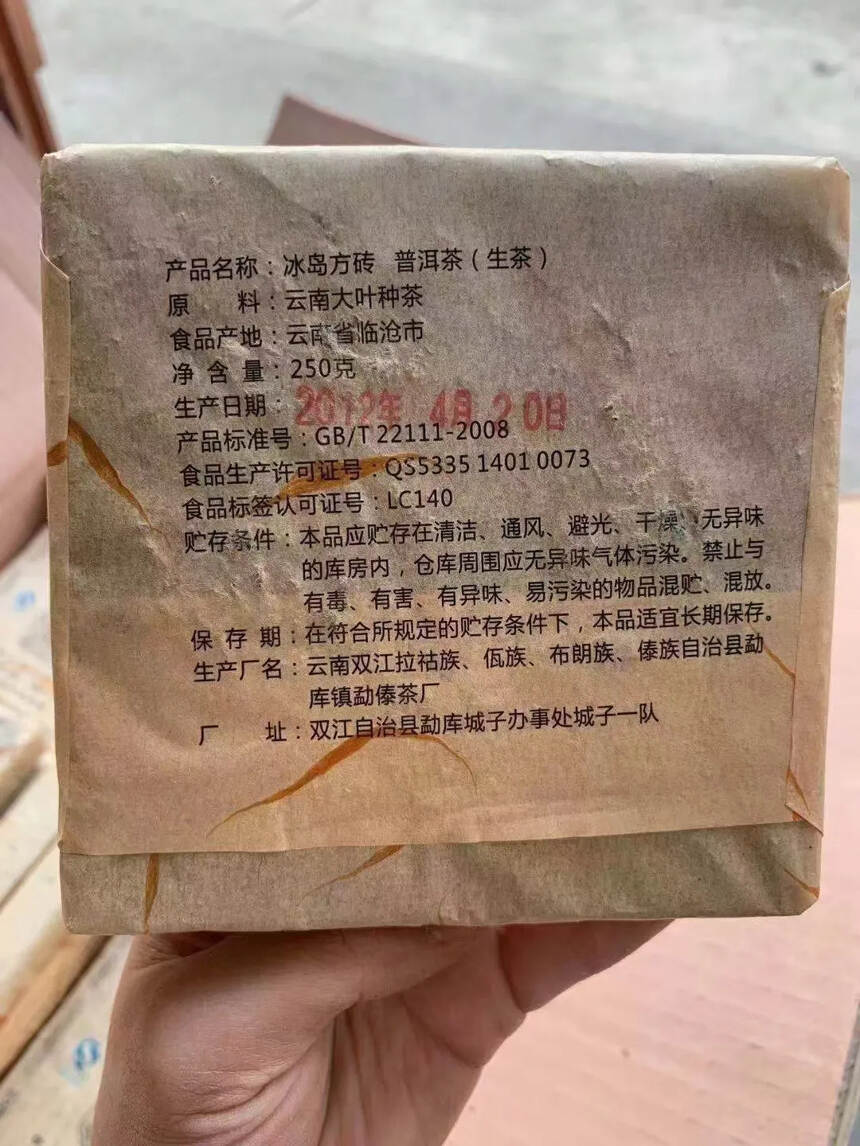 产品名称：冰岛方砖 普洱茶（生茶）
原 料：云南大叶种茶
食品产地：云南省临沧市
净 含 量：250克
生产日期：2012年 4月 20日
产品标准号：GB/T 22111-2008
食品生产许可证号：QS5335 1401 0073
食品标签认可证号：LC140
贮存条件：本品应贮存在清洁、通风、避光、干燥、无异味
的库房内，仓库周围应无异味气体污染。禁止与
有毒、有害、有异味、易污染的物品混贮、混放。
保 存 期：在符合所规定的贮存条件下，本品适宜长期保存。
生产厂名：云南双江拉祜族、佤族、布朗族、傣族自治县勐
库镇勐傣茶厂
厂 址：双江自治县勐库城子办事处城子一队